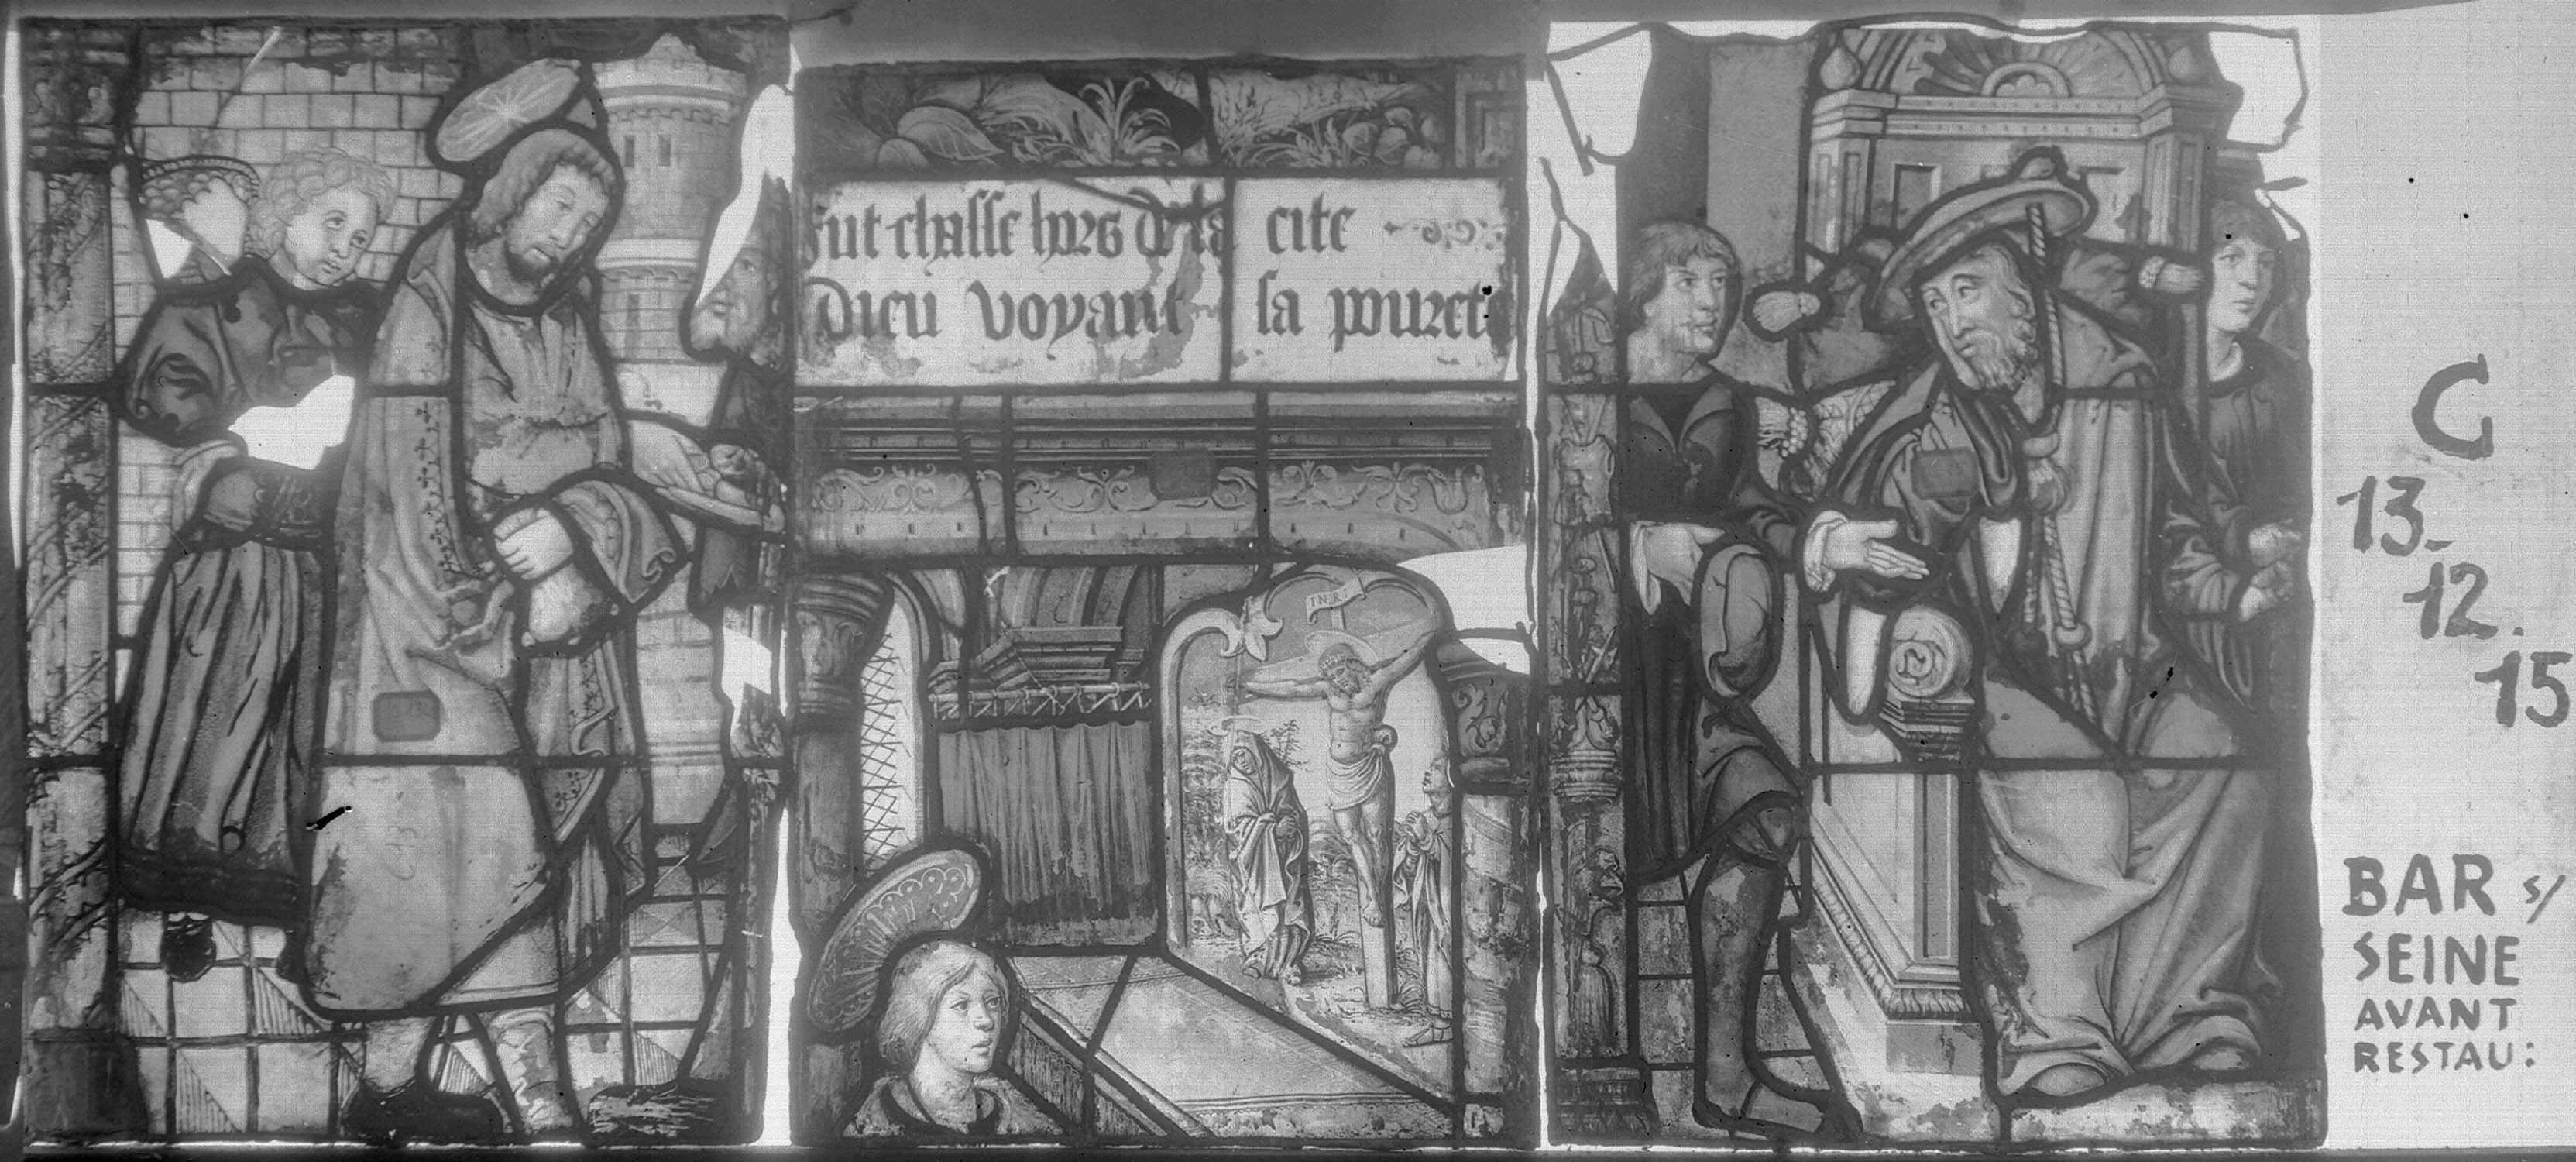 fut chasse hors de la cite
Dieu voyant sa pourete
INRI
C
13.
12.
15
BAR s/
SEINE
AVANT
RESTAU: